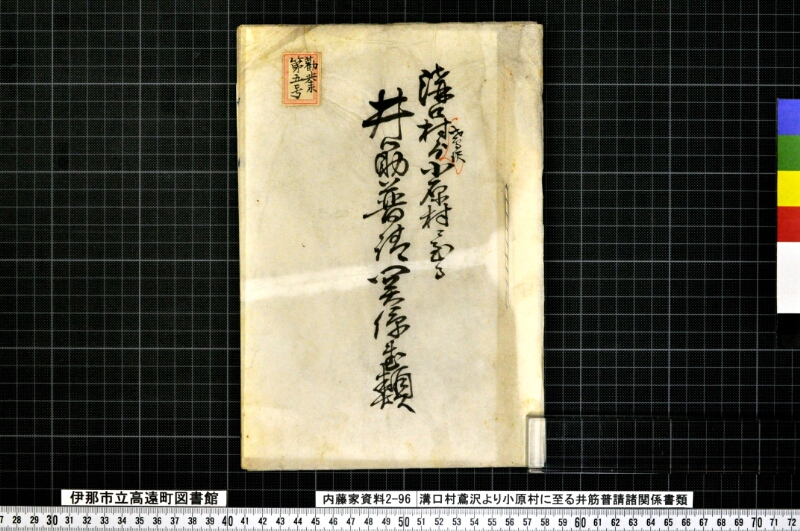 溝口村ゟ小原村ニ至る
鳶沢
井筋普請関係書類
勧業
第五号
伊那市立高遠町図書館
内藤家資料2-96
溝口村鳶沢より小原村に至る井筋普請諸関係書類
27 28 29 30 31 32 33 34 35 36 37 38 39 40 41 42 43 44 45 46 47 48 49 50 51 52 53 54 55 56 57 58 59 60 61 62 63 64 65 66 67 68 69 70 71 72